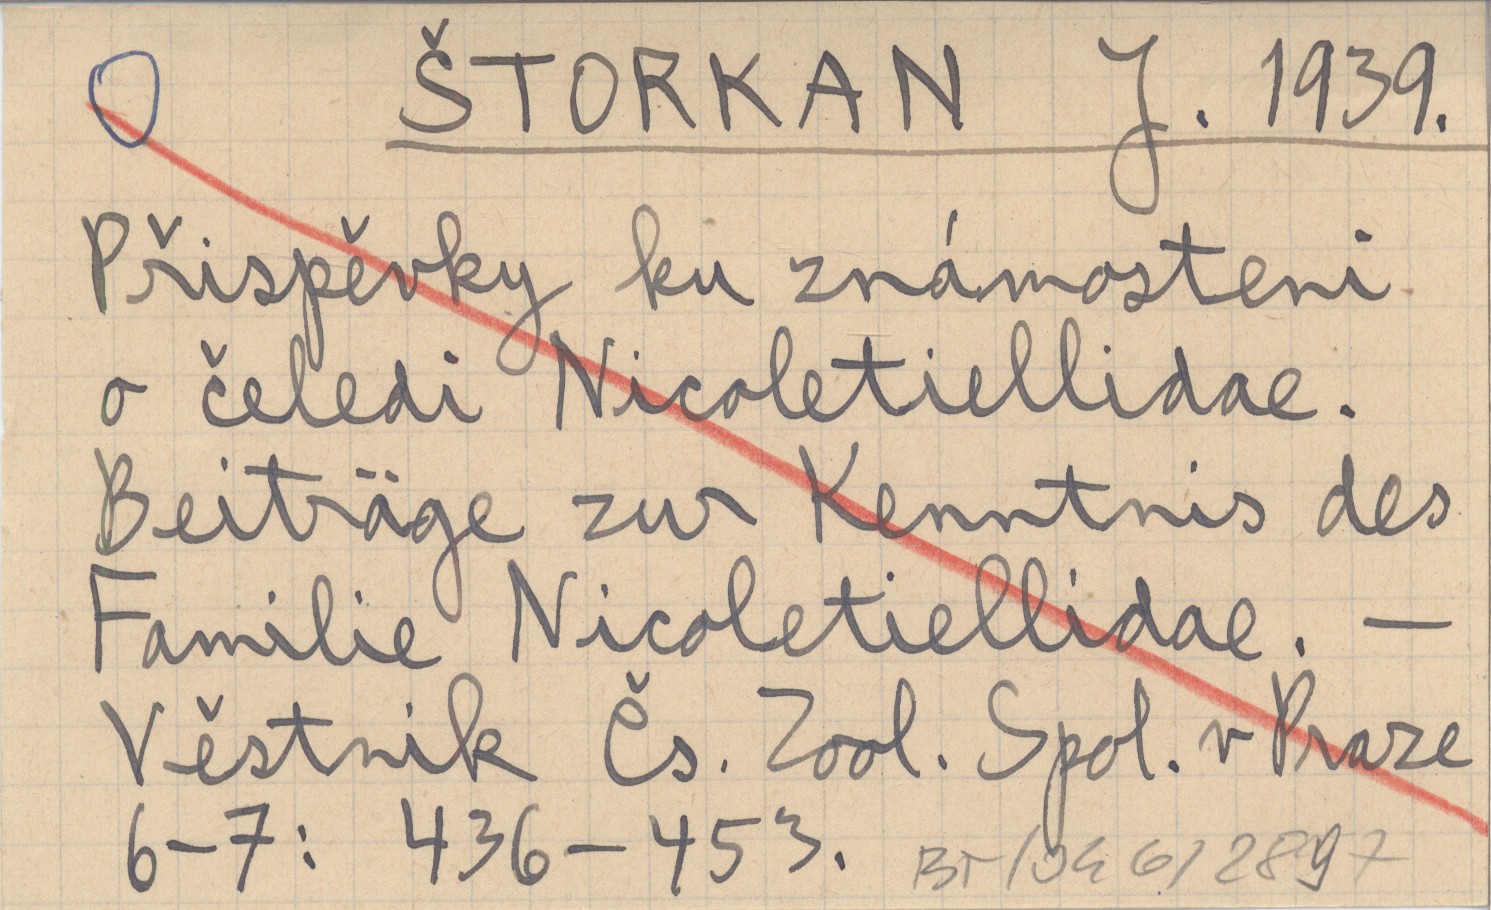 ŠTORKAN J. 1939.
Přispěvky ku známosteni
o čeledi Nicoletiellidae.
Beiträge zur Kenntnis des
Familie Nicoletiellidae. —
Věstnik Čs. Zool. Spol. v Praze
6-7: 436-453.
2897